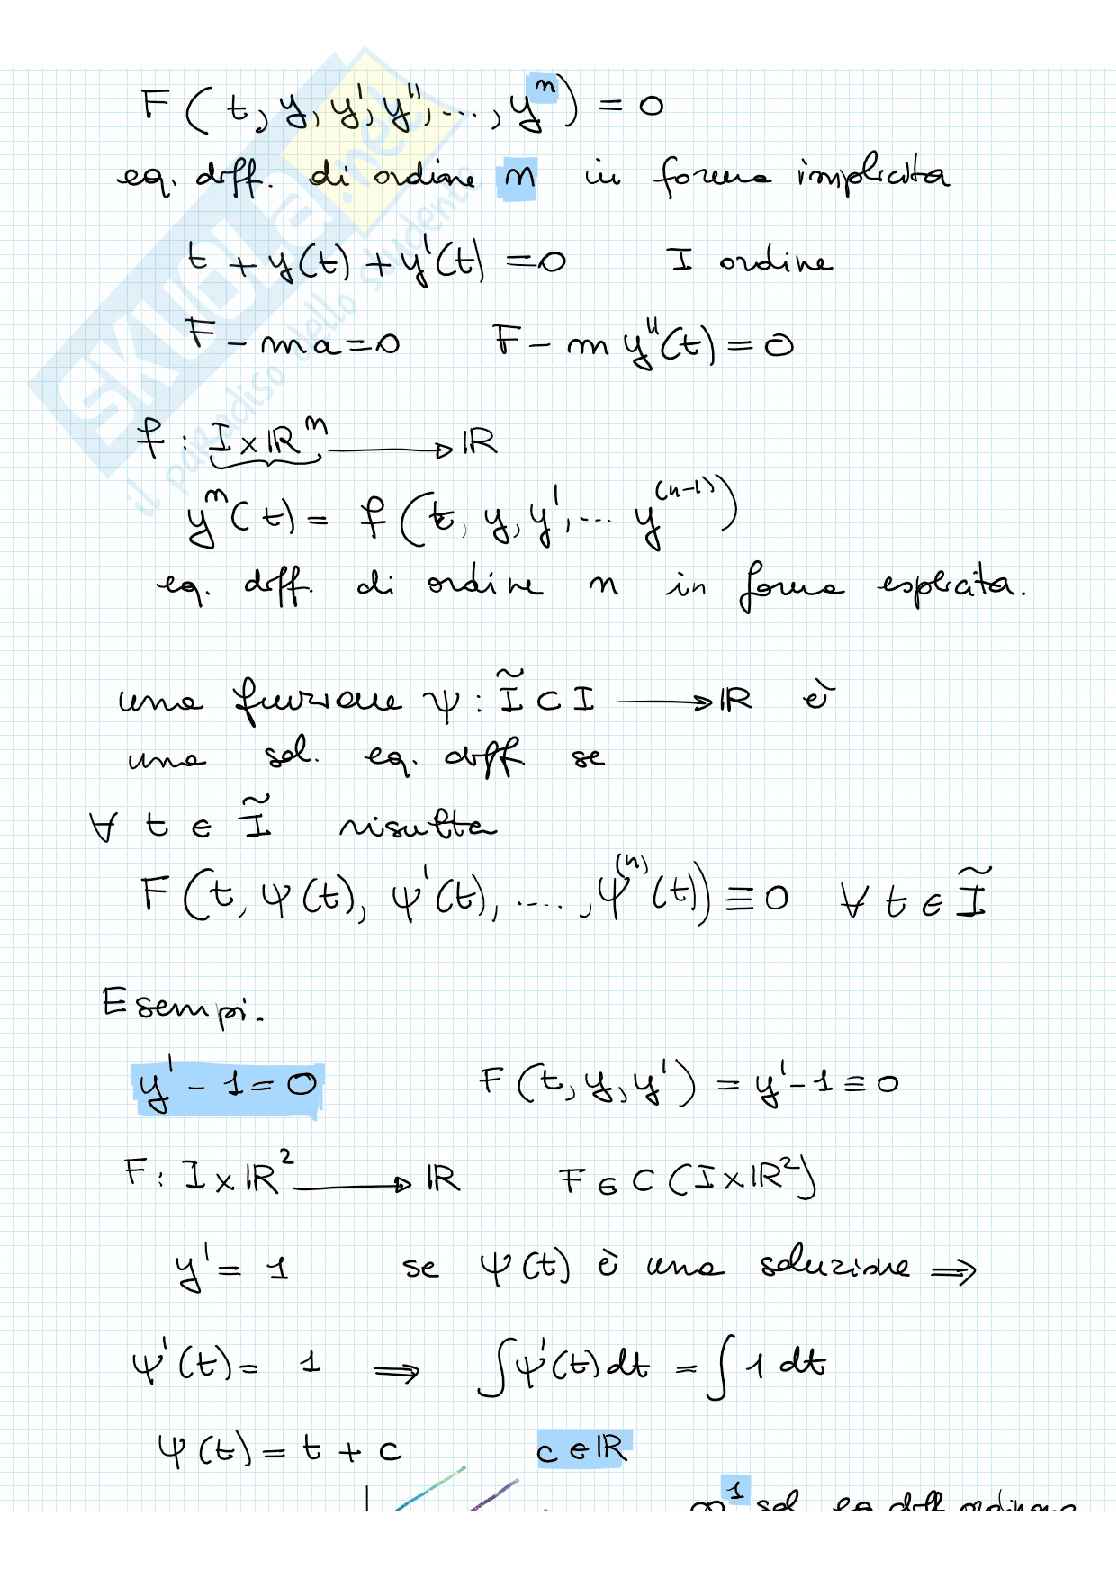 F(t, y, y', y'', ..., y^n) = 0
eq. diff. di ordine n in forma implicita
t + y(t) + y'(t) = 0 I ordine
F - ma = 0 F - m y''(t) = 0
f : I × ℝ^n → ℝ
y^n(t) = f(t, y, y', ... y^(n-1))
eq. diff. di ordine n in forma esplicata.
una funzione ψ : Ĩ ⊂ I → ℝ è
una sol. eq. diff se
∀ t ∈ Ĩ risulta
F(t, ψ(t), ψ'(t), ...., ψ^(n)(t)) ≡ 0 ∀ t ∈ Ĩ
Esempi.
y' - 1 = 0 F(t, y, y') = y' - 1 ≡ 0
F : I × ℝ² → ℝ F ∈ C(I × ℝ²)
y' = 1 se ψ(t) è una soluzione ⇒
ψ'(t) = 1 ⇒ ∫ψ'(t) dt = ∫ 1 dt
ψ(t) = t + c c ∈ ℝ
SKUOLA.net
il paradiso dello studente